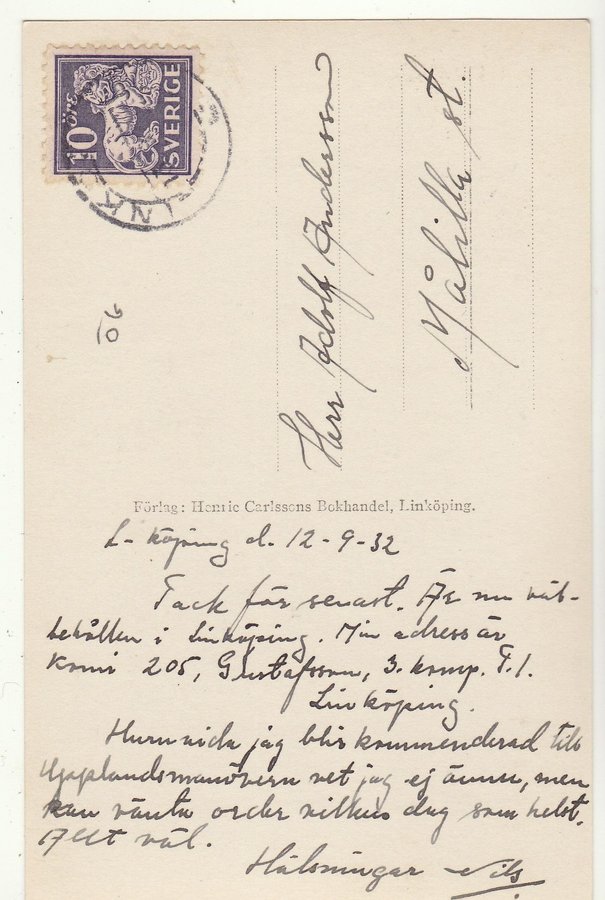 10 öre
SVERIGE
LINK
Herr Adolf Andersson
Målilla st.
Förlag: Henric Carlssons Bokhandel, Linköping.
L-köping d. 12-9-32
Tack för senast. Är nu väl-
behållen i Linköping. Min adress är
Komi 205, Gustafsson, 3. komp. T.1.
Linköping.
Huruvida jag blir kommenderad till
Upplandsmanövern vet jag ej ännu, men
kan vänta order vilken dag som helst.
Allt väl.
Hälsningar Nils